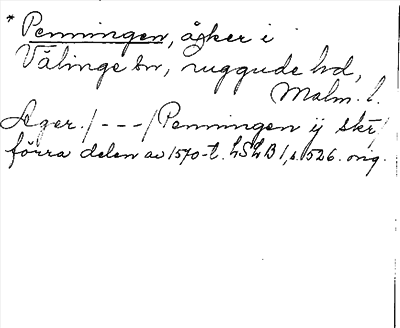 * Penningen, åker i
Välinge sn, ruggude hd,
Malm. l.
Ager. /---/ Penningen ij skr/
förra delen av 1570-t. LSLB 1, s. 526. orig.